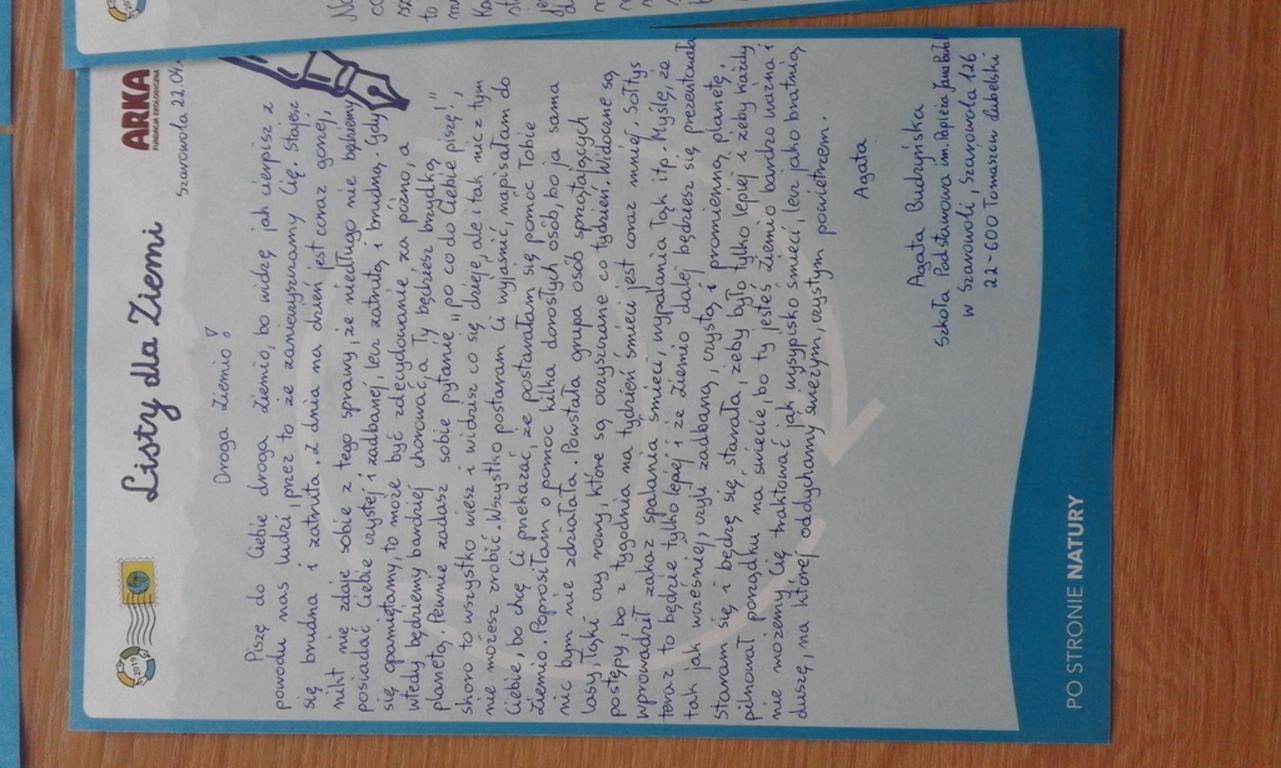 2019
Listy dla Ziemi
ARKA
FUNDACJA EKOLOGICZNA
Szarowola 22.04.
Droga Ziemio!
Piszę do Ciebie droga Ziemio, bo widzę jak cierpisz z
powodu nas ludzi, przez to że zanieczyszczamy Cię. Stajesz
się brudna i zatruta. Z dnia na dzień jest coraz gorzej,
nikt nie zdaje sobie z tego sprawy, że niedługo nie będziemy
posiadać Ciebie czystej i zadbanej, lecz zatrutą i brudną. Gdy
się opamiętamy, to może być zdecydowanie za późno, a
wtedy będziemy bardziej chorować, a Ty będziesz brzydką
planetą. Pewnie zadasz sobie pytanie „po co do Ciebie piszę!",
skoro to wszystko wiesz i widzisz co się dzieje, ale i tak nic z tym
nie możesz zrobić. Wszystko postaram Ci wyjaśnić, napisałam do
Ciebie, bo chcę Ci przekazać, że postarałam się pomoc Tobie
Ziemio. Poprosiłam o pomoc kilka dorosłych osób, bo ja sama
nic bym nie zdziałała. Powstała grupa osób sprzątających
lasy, łąki czy rowy, które są oczyszczane co tydzień. Widoczne są
postępy, bo z tygodnia na tydzień śmieci jest coraz mniej. Sołtys
wprowadził zakaz spalania śmieci, wypalania łąk itp. Myślę, że
teraz to będzie tylko lepiej i że Ziemio dalej będziesz się prezentowała
tak jak wcześniej, czyli zadbaną, czystą i promienną planetę.
Staram się i będę się starała, żeby było tylko lepiej i żeby każdy
pilnował porządku na świecie, bo ty jesteś Ziemio bardzo ważna i
nie możemy Cię traktować jak wysypisko śmieci, lecz jako bratnią
duszę, na której oddychamy świeżym, czystym powietrzem.
Agata
Agata Budzyńska
Szkoła Podstawowa im. Papieża Jana Pawła II
w Szarowoli, Szarowola 126
22-600 Tomaszów Lubelski
PO STRONIE NATURY